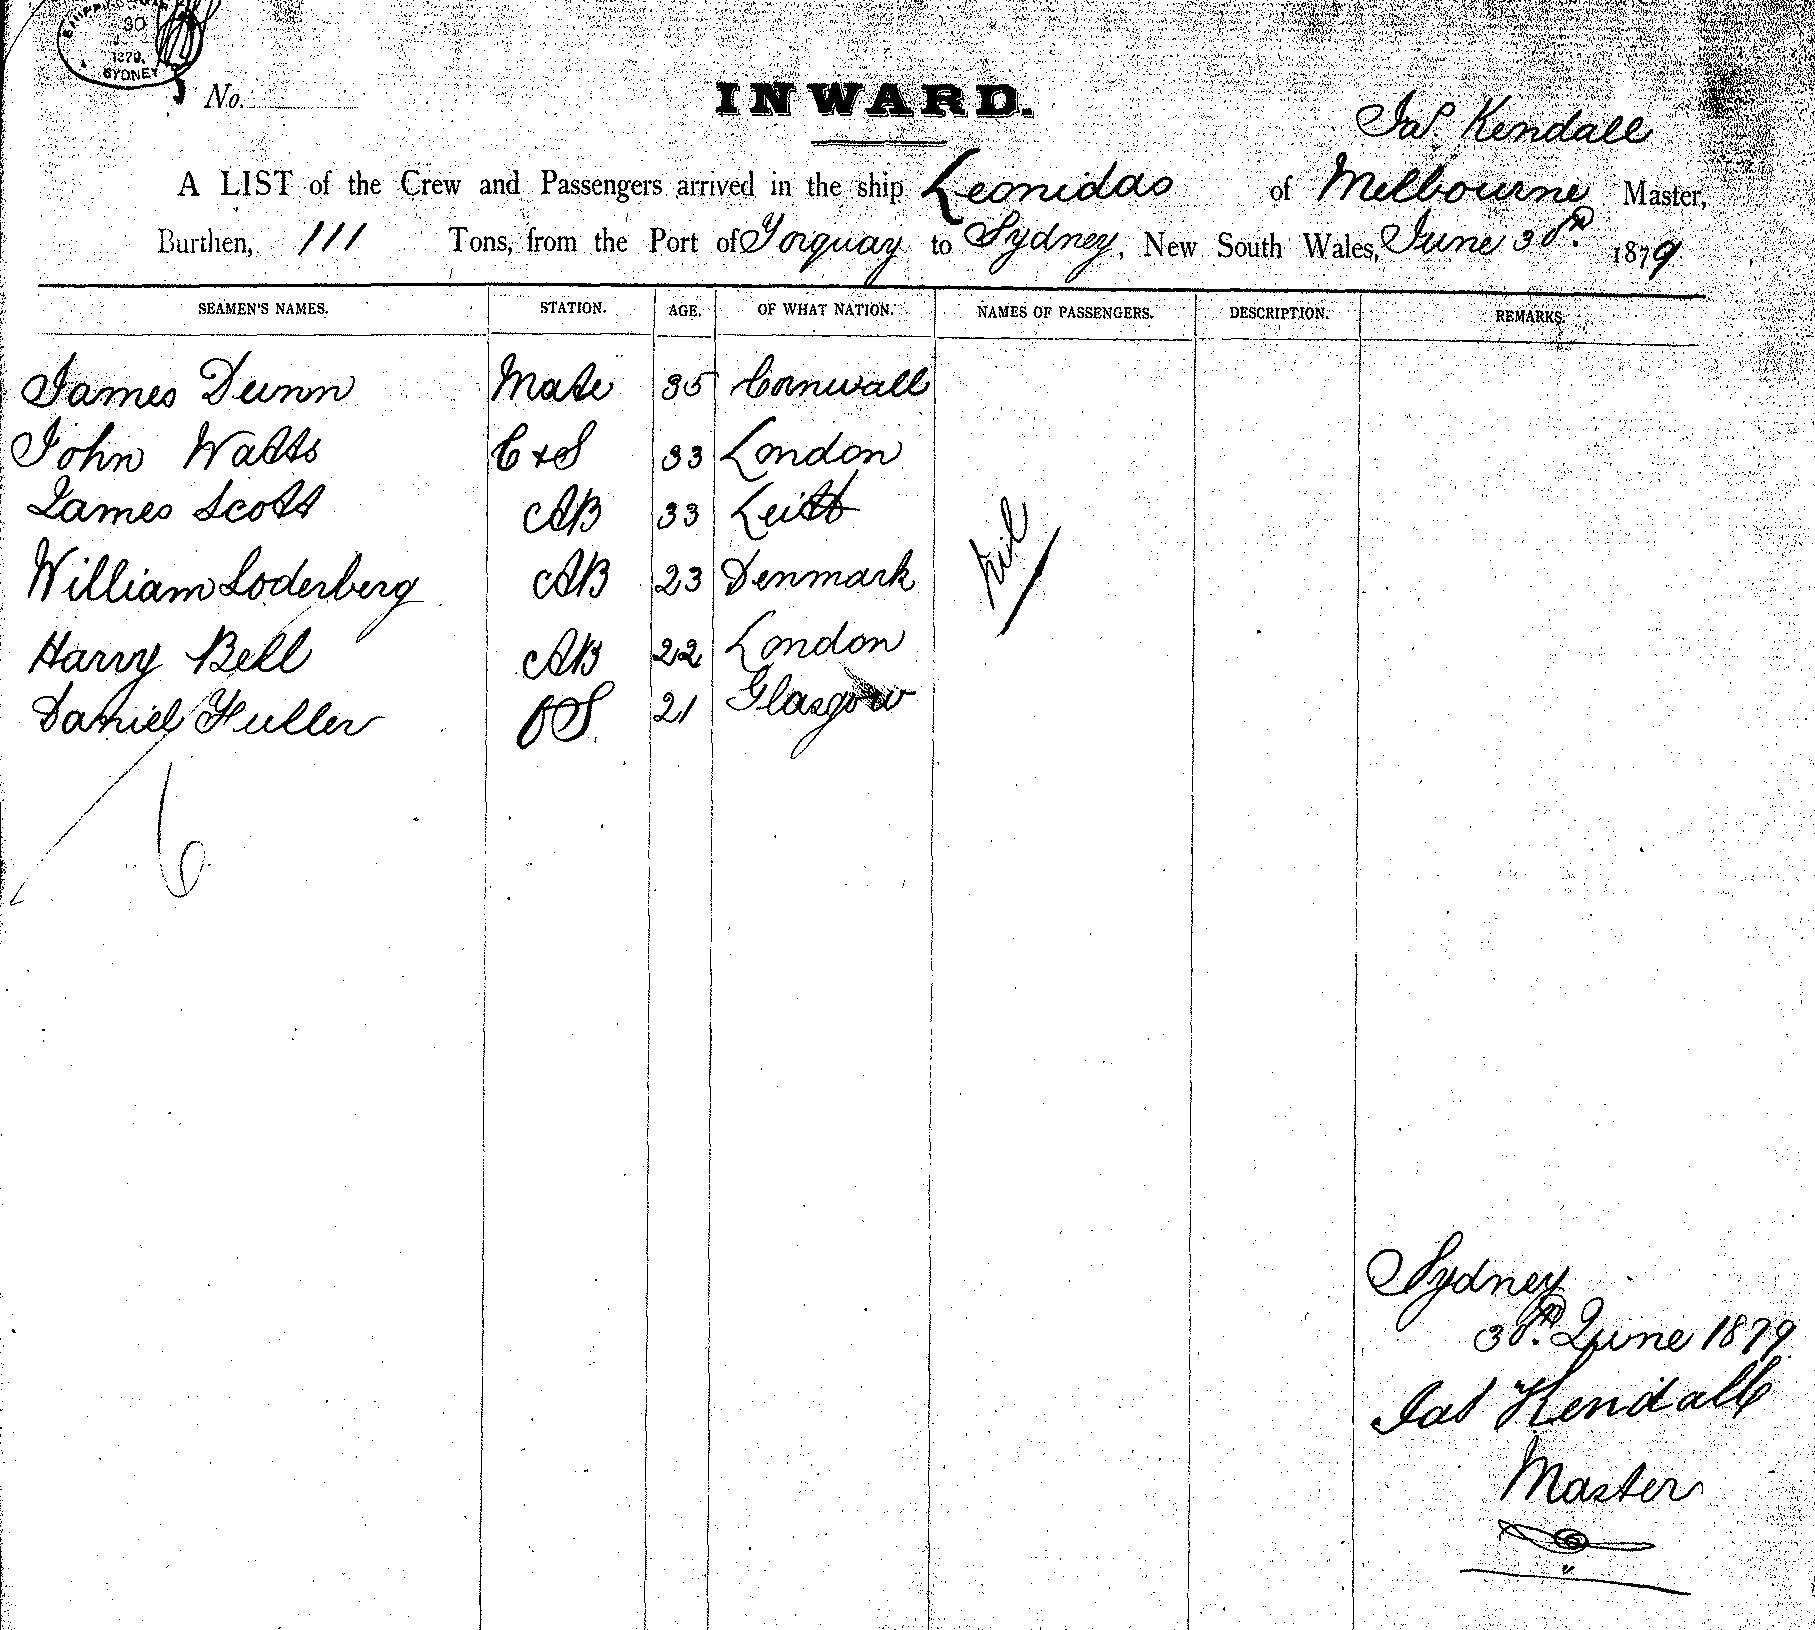 SHIPPING
30
1879.
SYDNEY
No.
INWARD.
Jas. Kendall
A LIST of the Crew and Passengers arrived in the ship Leonidas of Melbourne Master,
Burthen, 111 Tons, from the Port of Torquay to Sydney, New South Wales, June 30th 1879
SEAMEN'S NAMES. STATION. AGE. OF WHAT NATION. NAMES OF PASSENGERS. DESCRIPTION. REMARKS.
James Dunn Mate 35 Cornwall
John Watts C & S 33 London
James Scott AB 33 Leith
nil
William Soderberg AB 23 Denmark
Harry Bell AB 22 London
Daniel Fuller OS 21 Glasgow
6
Sydney
30th June 1879
Jas Kendall
Master